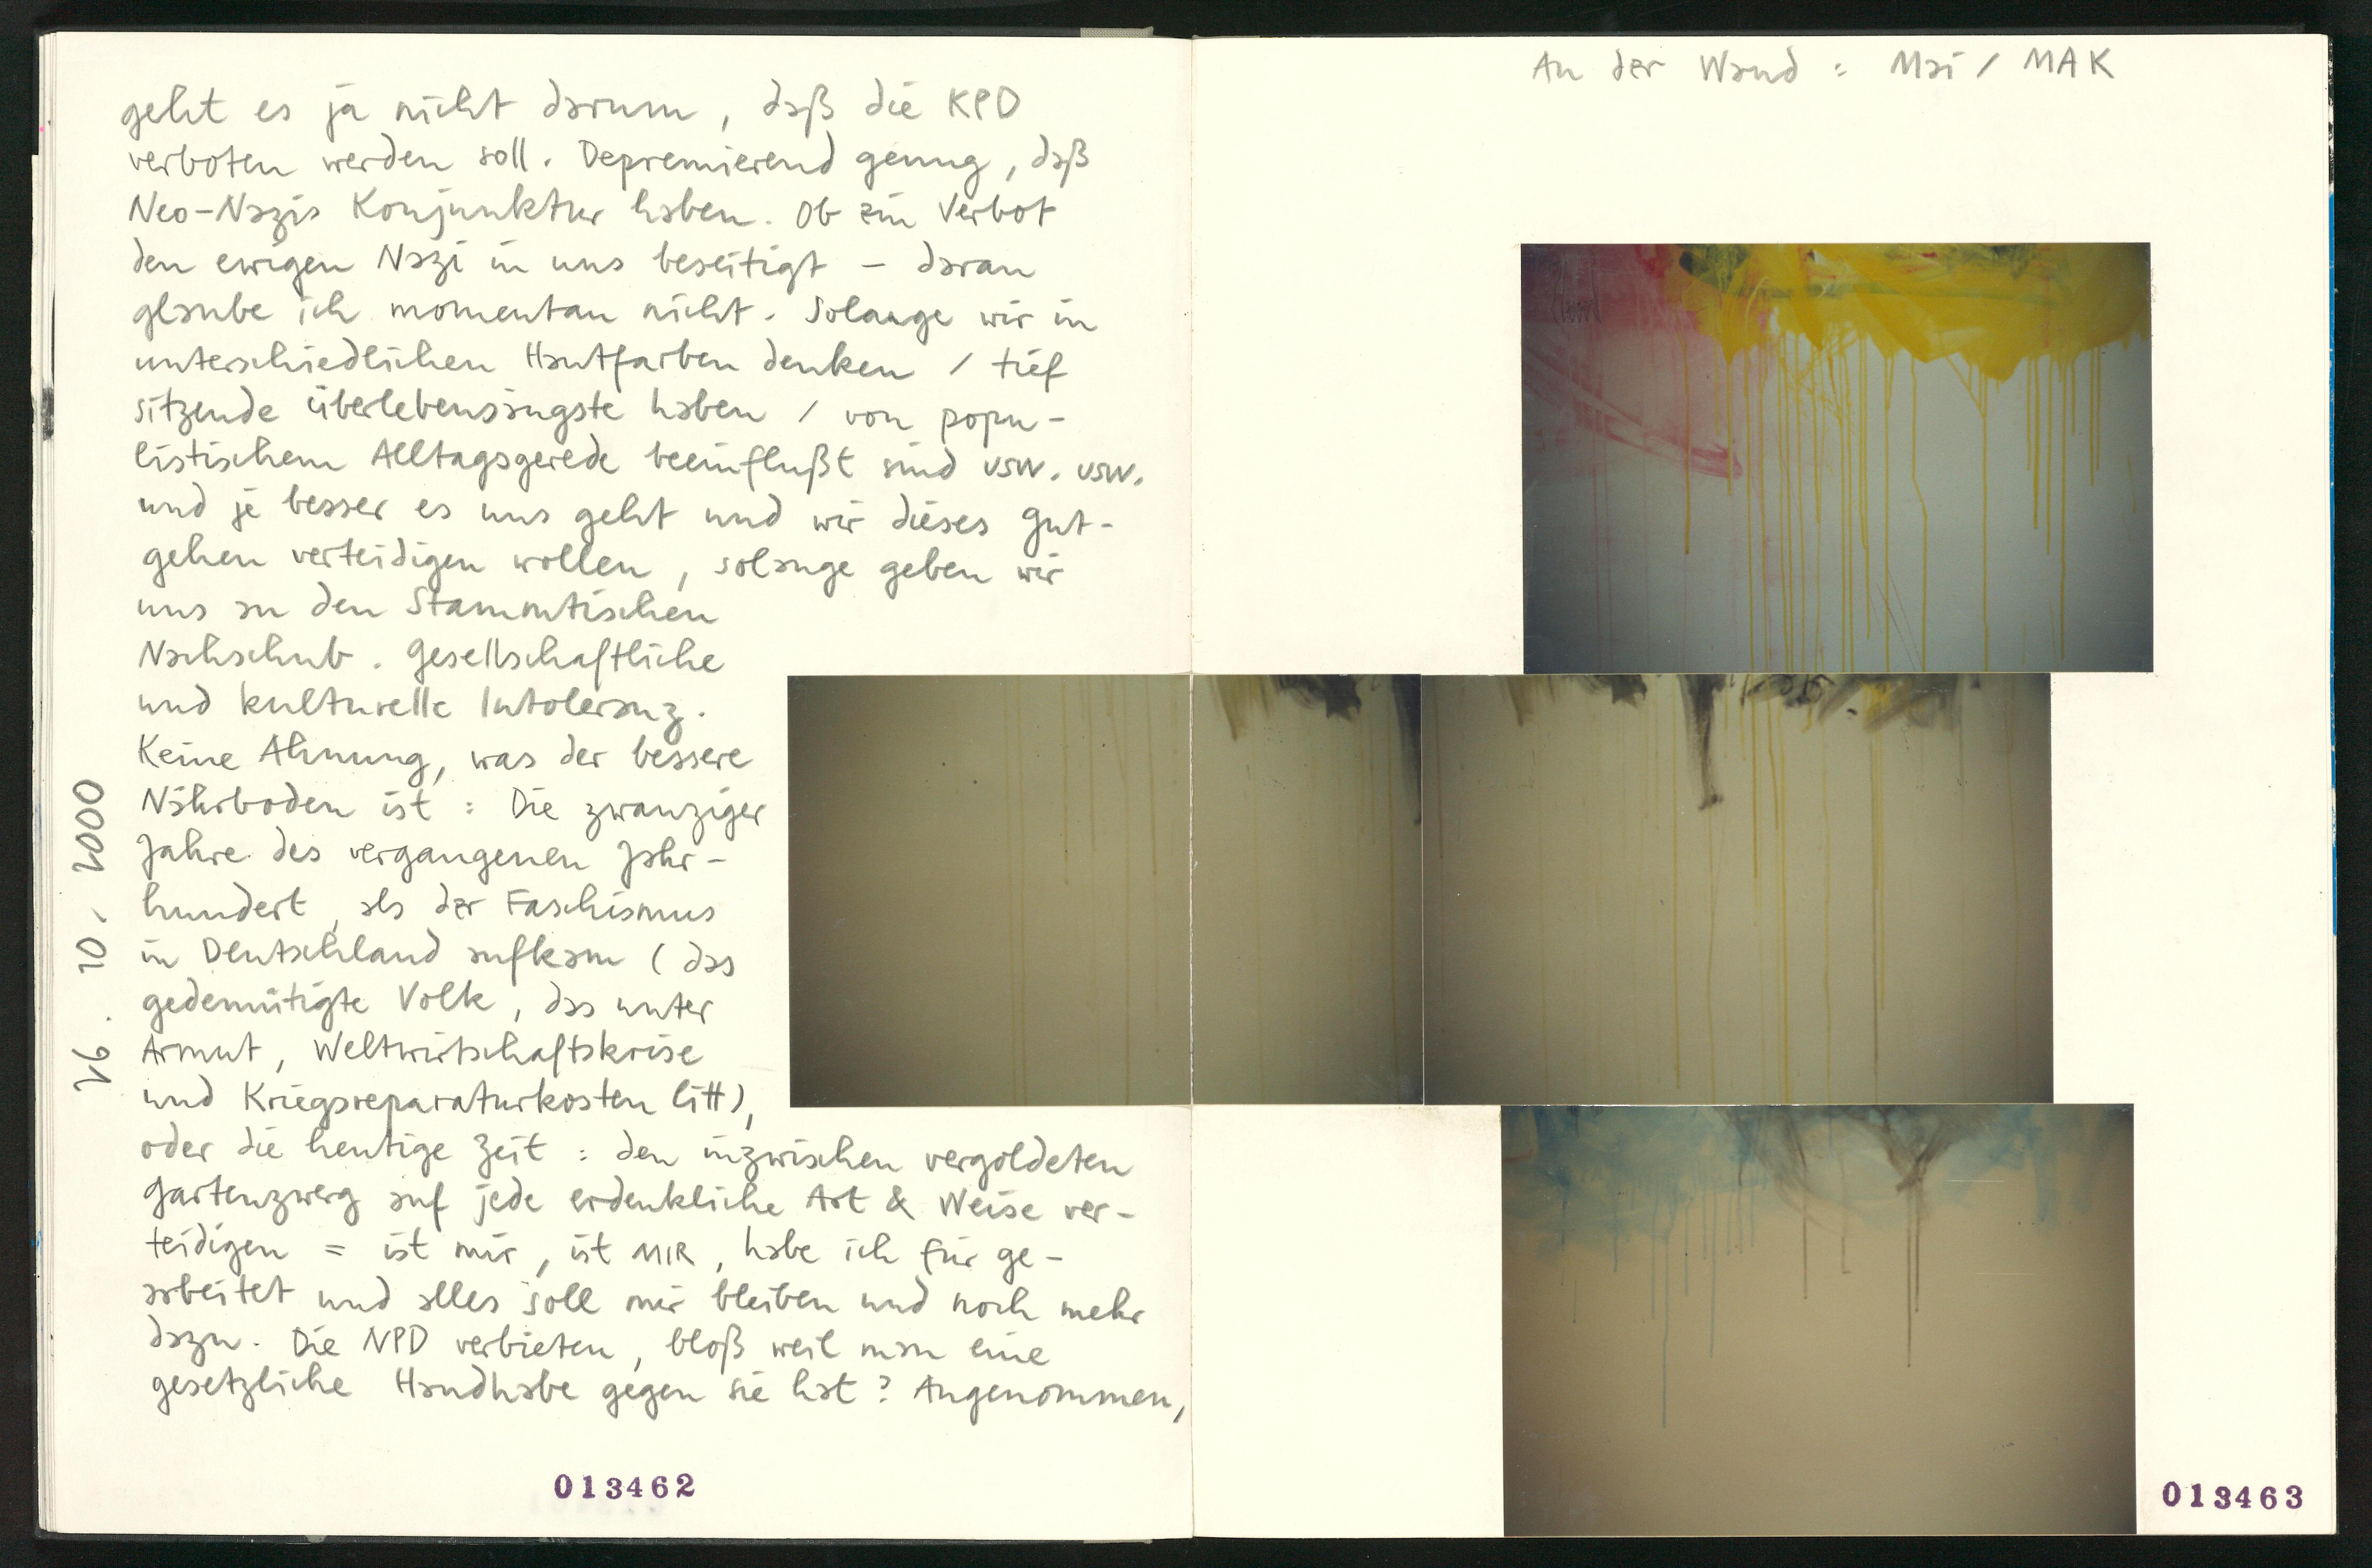 geht es ja nicht darum, daß die KPD
verboten werden soll. Depremierend genug, daß
Neo-Nazis Konjunktur haben. Ob ein Verbot
den ewigen Nazi in uns beseitigt – daran
glaube ich momentan nicht. Solange wir in
unterschiedlichen Hautfarben denken / tief
sitzende Überlebensängste haben / von popu-
listischem Alltagsgerede beeinflußt sind usw. usw.
und je besser es uns geht und wir dieses gut-
gehen verteidigen wollen, solange geben wir
uns an den Stammtischen
Nachschub. Gesellschaftliche
und kulturelle Intoleranz.
Keine Ahnung, was der bessere
Nährboden ist : Die zwanziger
Jahre des vergangenen Jahr-
hundert, als der Faschismus
in Deutschland aufkam (das
gedemütigte Volk, das unter
Armut, Weltwirtschaftskrise
und Kriegsreparaturkosten litt),
oder die heutige Zeit : den inzwischen vergoldeten
Gartenzwerg auf jede erdenkliche Art & Weise ver-
teidigen = ist mir, ist MIR, habe ich für ge-
arbeitet und alles soll mir bleiben und noch mehr
dazu. Die NPD verbieten, bloß weil man eine
gesetzliche Handhabe gegen sie hat? Angenommen,
26. 10. 2000
013462
An der Wand : Mai / MAK
013463